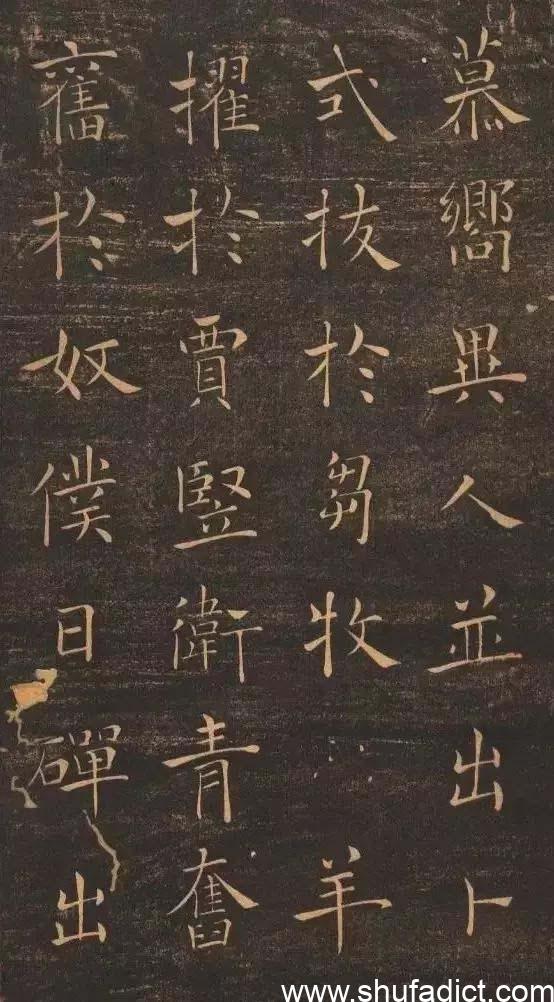 慕嚮異人並出卜
式拔於芻牧羊
擢於賈豎衛青奮
於奴僕日磾出
www.shufadict.com